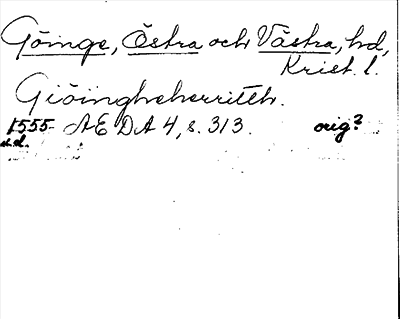 Göinge, Östra och Västra, hd,
Krist. l.
Giöingheherritth.
1555 AEDA 4, s. 313. orig?
u.d.